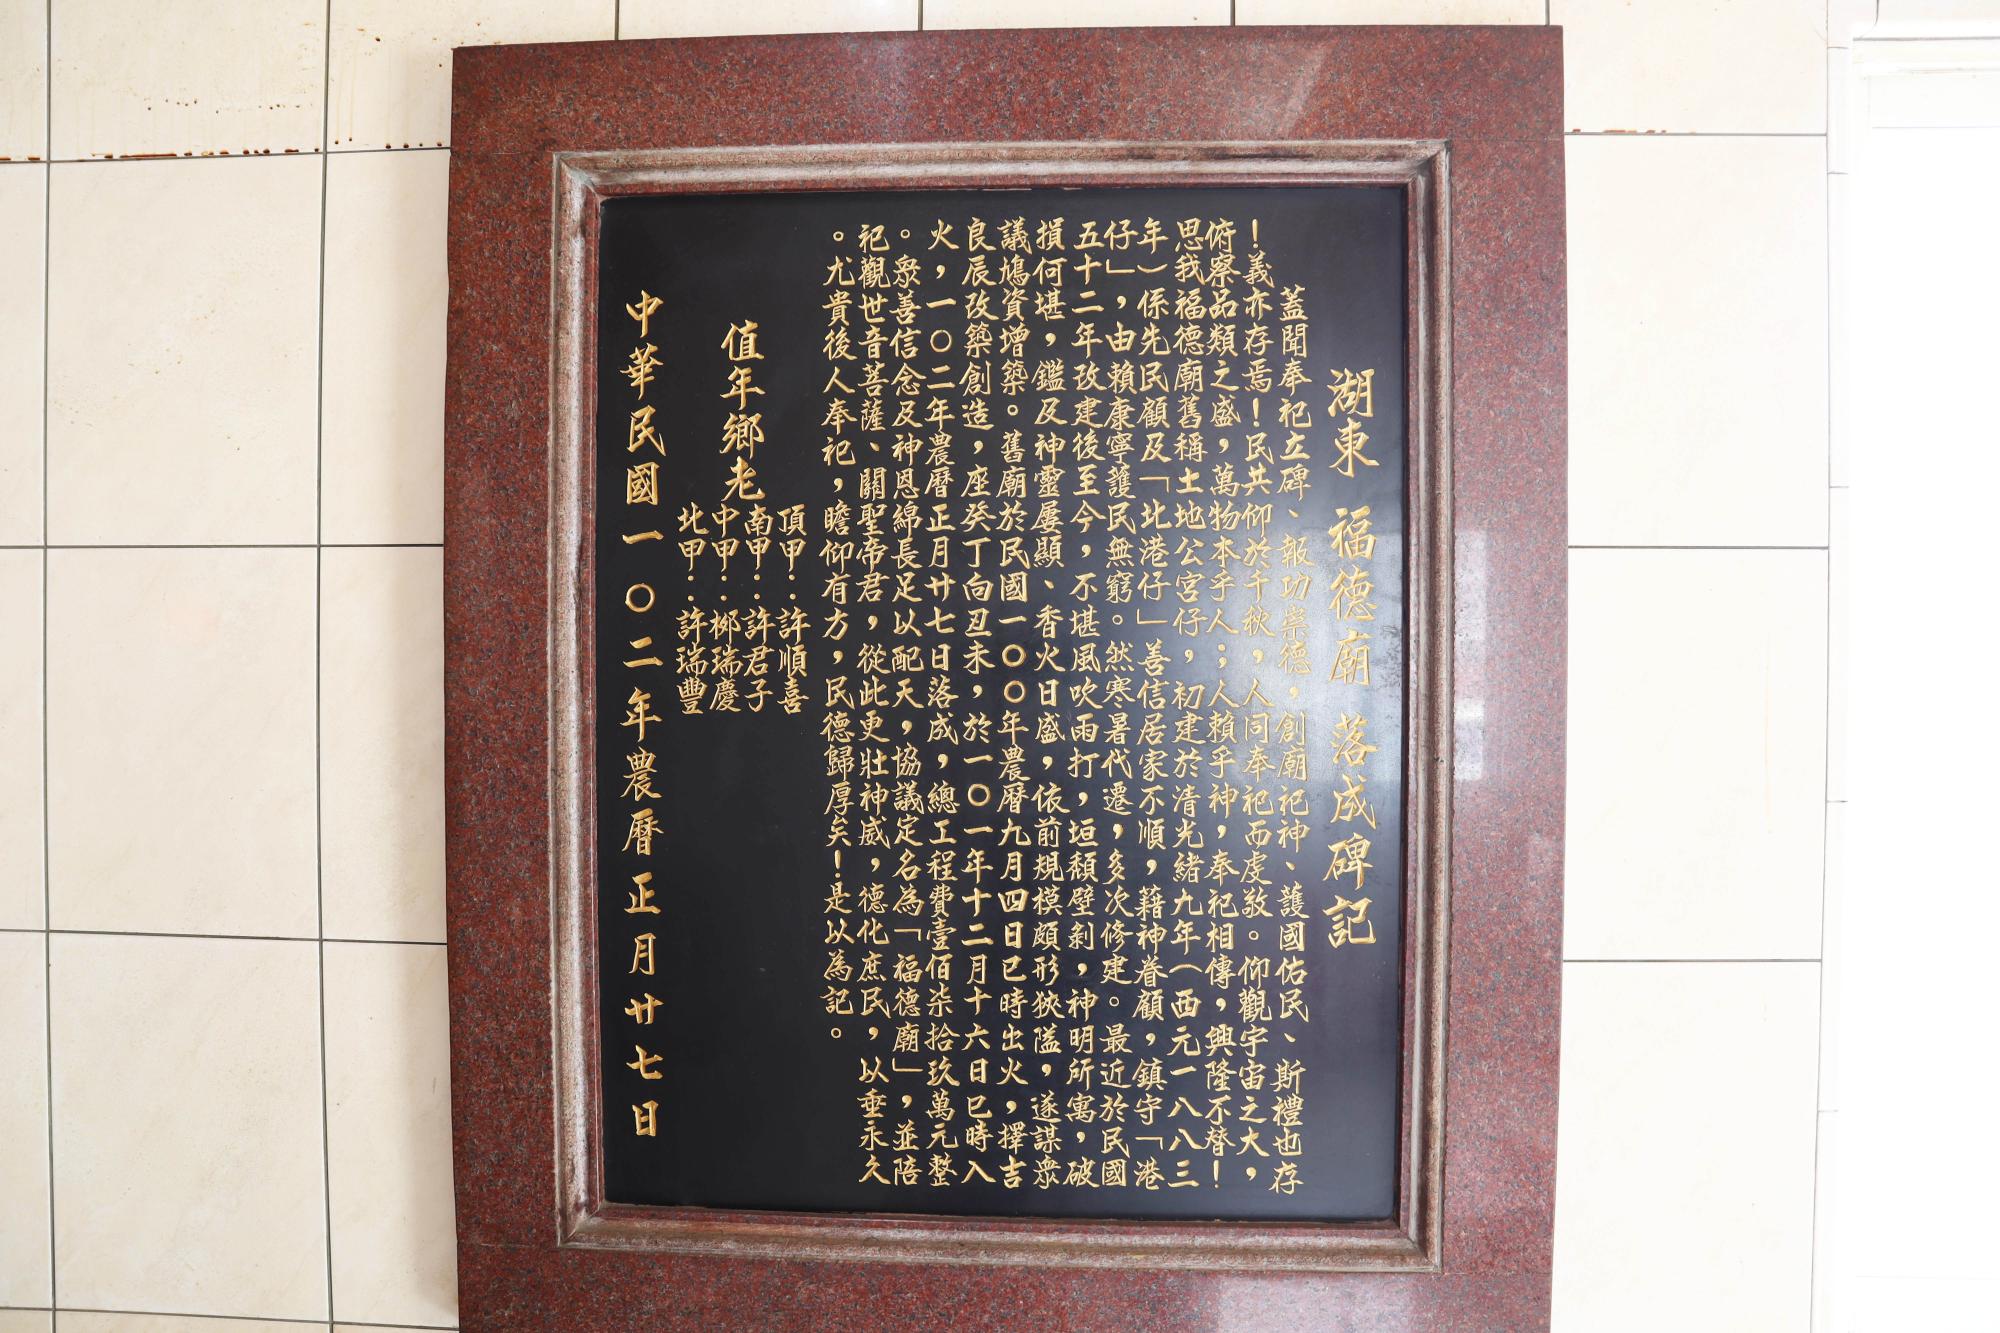 湖東 福德廟 落成碑記
蓋聞奉祀立碑、報功崇德，創廟祀神、護國佑民、斯禮也存
！義亦存焉！民共仰於千秋，人同奉祀而虔敬。仰觀宇宙之大，
俯察品類之盛，萬物本乎人；人賴乎神，奉祀相傳，興隆不替！
思我福德廟舊稱土地公宮仔，初建於清光緒九年（西元一八八三
年）係先民顧及「北港仔」善信居家不順，藉神眷顧，鎮守「港
仔」，由賴康寧護民無窮。然寒暑代遷，多次修建。最近於民國
五十二年改建後至今，不堪風吹雨打，垣頹壁剝，神明所寓，破
損何堪，鑑及神靈屢顯、香火日盛，依前規模頗形狹隘，遂謀眾
議鳩資增築。舊廟於民國一〇〇年農曆九月四日巳時出火，擇吉
良辰改築創造，座癸丁向丑未，於一〇一年十二月十六日巳時入
火，一〇二年農曆正月廿七日落成，總工程費壹佰柒拾玖萬元整
。眾善信念及神恩綿長足以配天，協議定名為「福德廟」，並陪
祀觀世音菩薩、關聖帝君，從此更壯神威，德化庶民，以垂永久
。尤貴後人奉祀，瞻仰有方，民德歸厚矣！是以為記。
頂甲：許順喜
南甲：許君子
值年鄉老
中甲：柳瑞慶
北甲：許瑞豐
中華民國一〇二年農曆正月廿七日